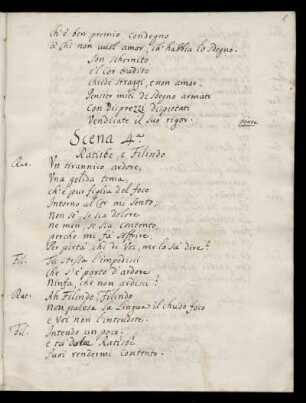 ch'è ben premio condegno
à chi non vuol amor ch'habbia lo sdegno.
Son schernito
e'l cor tradito
chiede straggi, e non amor.
Pensier miei di sdegno armati
Con disprezzi dispietati
Vendicate il suo rigor.
Scena 4.a
Ratisbe, e Filindo
Vn tirannico ardore,
Vna gelida tema,
ch'è pur figlia del foco
Intorno al Cor mi sento;
Non sè, se sia dolore
ne men, se sia contento,
perche mi fà soffrire
Per pietà chi di Voi, me lo sà dire?
Fil. Tù stessa l'impedisci
che s'è parto d'ardore
Ninfa, che non ardisci?
Rat. Ah Filindo, Filindo
Non palesa la lingua il chiuso foco
e Voi non l'intendete.
Fil. Intendo un poco:
e tu Ratisbe
Vuoi rendermi contento.